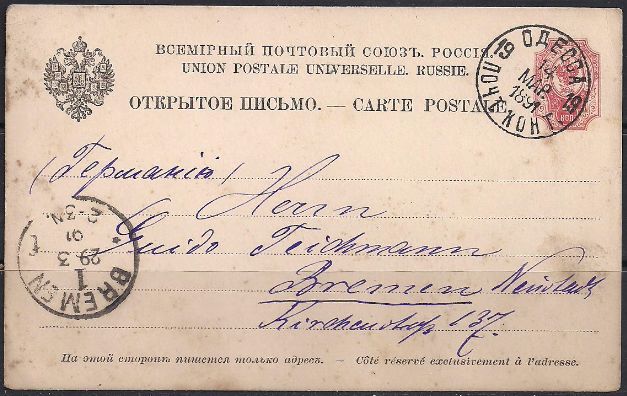 ВСЕМІРНЫЙ ПОЧТОВЫЙ СОЮЗЪ. РОССІЯ.
UNION POSTALE UNIVERSELLE. RUSSIE.
ОТКРЫТОЕ ПИСЬМО. — CARTE POSTALE
19 ОДЕССА 19
МАР.
1891
ПОЧТ. КОНТ.
(Германію) Herrn
Guido Teichmann
Bremen Neustadt
137.
BREMEN
1
29 3
91
2-3N.
На этой сторонѣ пишется только адресъ. — Côté réservé exclusivement à l'adresse.